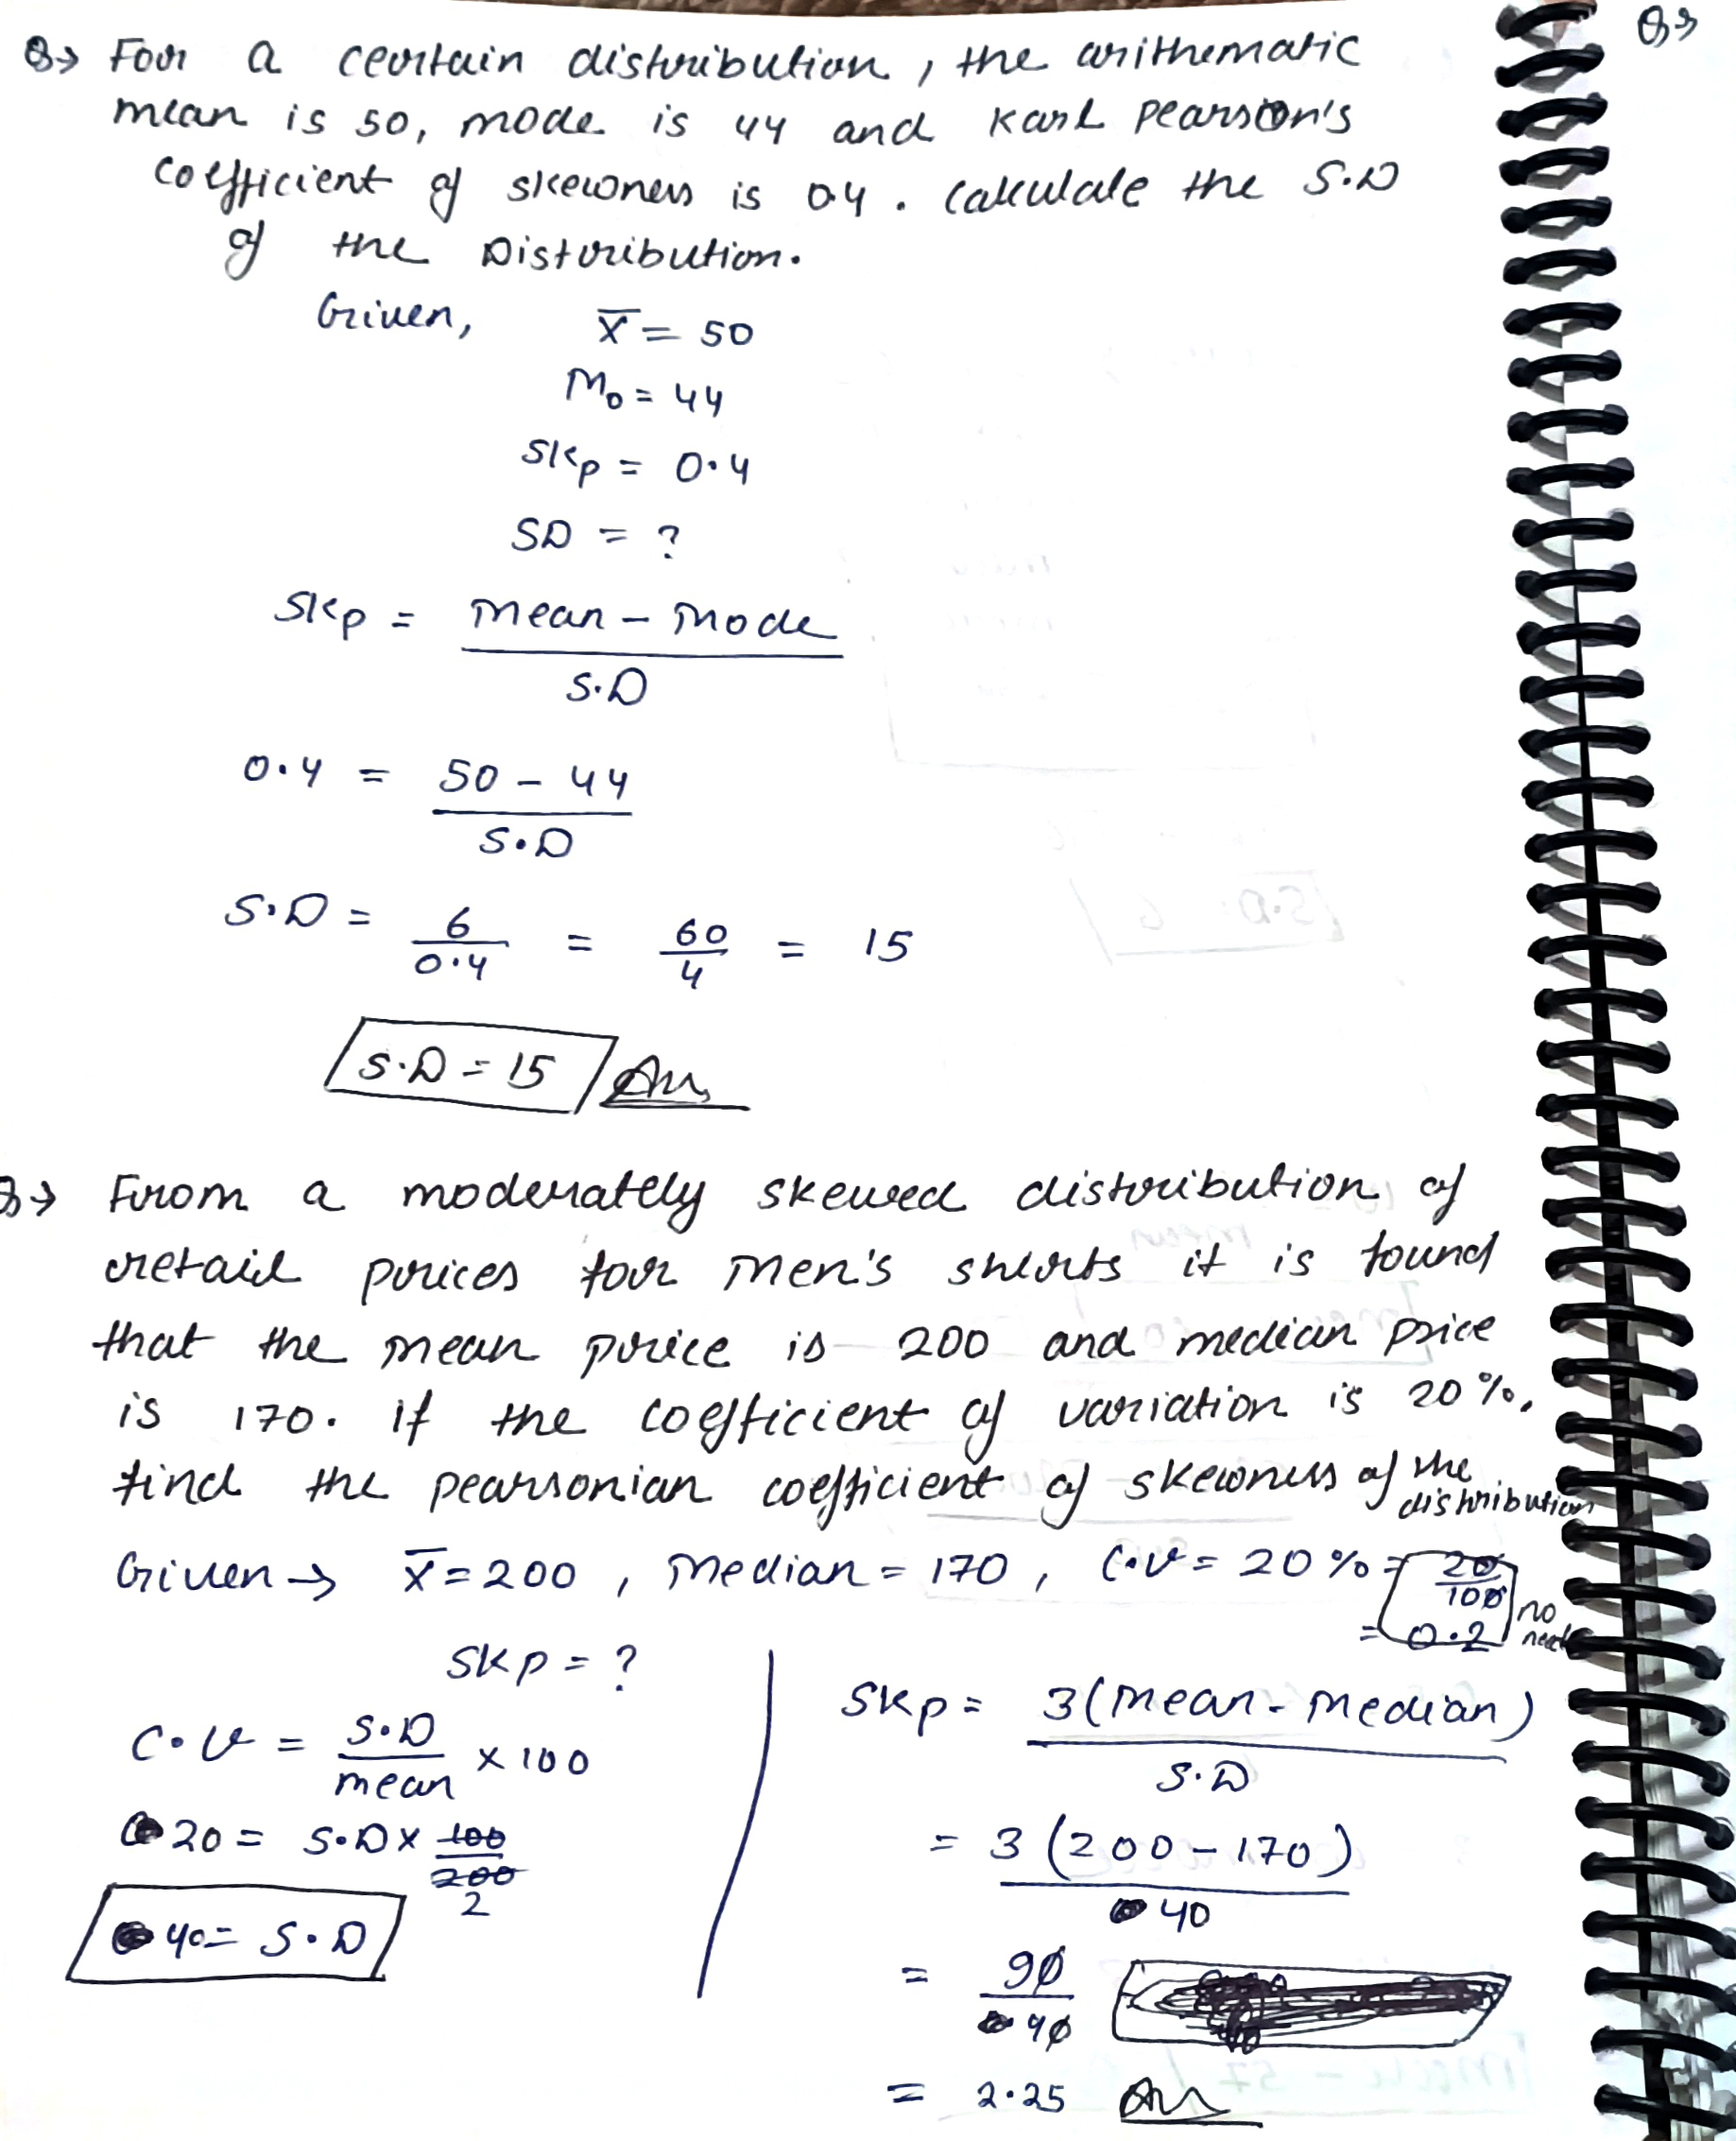 Q→ For a certain distribution, the arithematic
mean is 50, mode is 44 and Karl Pearson's
coefficient of skewness is 0.4. Calculate the S.D
of the Distribution.
Given, X̅ = 50
Mo = 44
Skp = 0.4
SD = ?
Skp = Mean - Mode
S.D
0.4 = 50 - 44
S.D
S.D = 6/0.4 = 60/4 = 15
S.D = 15 Ans
Q→ From a moderately skewed distribution of
retail prices for men's shirts it is found
that the mean price is 200 and median price
is 170. if the coefficient of variation is 20%,
find the pearsonian coefficient of skewness of the
distribution
Given → X̅ = 200, Median = 170, C.V = 20% = 20/100
= 0.2 no need
Skp = ?
C.V = S.D/mean × 100
20 = S.D × 100/200
2
40 = S.D
Skp = 3(Mean - Median)
S.D
= 3(200 - 170)
40
= 90
40
= 2.25 Ans
Q→